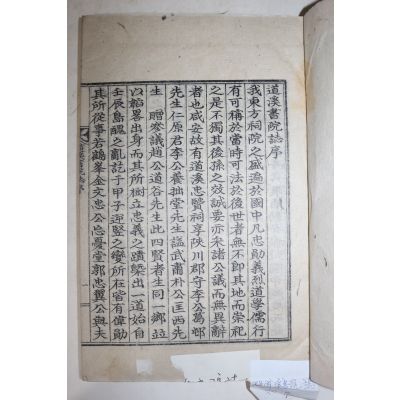 道溪書院誌序
我東方祠院之盛遍於國中凡忠勳義烈道學儒行
有可稱於當時可法於後世者無不卽其地而崇祀
之是不獨其後孫之效誠要亦采諸公議而無異辭
者也咸安故有道溪忠賢祠享陜川郡守李公 邨
先生仁原君李公養拙堂先生謚武肅朴公匡西先
生 贈參議趙公道谷先生此四賢者生同一鄉並
以韜畧出身而其所樹立忠義之蹟槩出一道始自
壬辰島醜之亂訖于甲子逆竪之變所在皆有偉勛
其所從事若鶴峯金文忠公忘憂堂郭忠翼公與夫